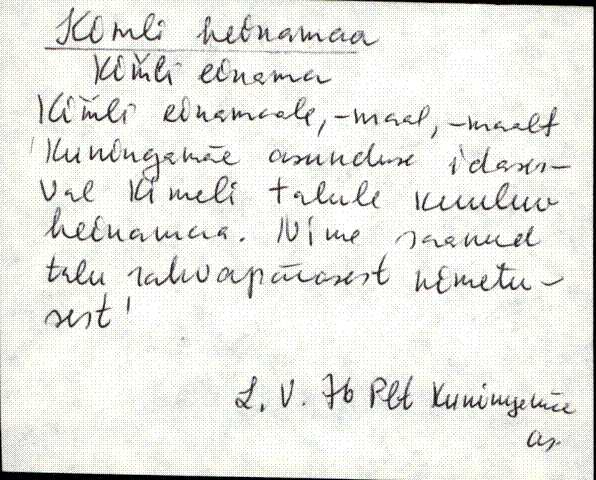 Kimli heinamaa
Kim̆li einama
Kim̆li einamaale, -maal, -maalt
Kuningamäe asunduse idaser-
val Kimeli talule kuuluv
heinamaa. Nime saanud
talu rahvapärasest nimetu-
sest!
L. V. 76 Plt Kuningamäe
as.